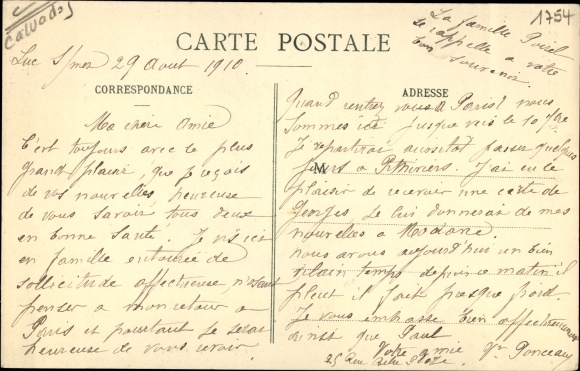 Calvados
1754
La famille
se rappelle a votre
bon Souvenir
CARTE POSTALE
Luc s/mer 29 Aout 1910.
CORRESPONDANCE
Ma chere Amie
C'est toujours avec le plus
grand plaisir, que je reçois
de vos nouvelles, heureuse
de vous savoir tous deux
en bonne Santé. Je suis ici
en famille entourée de
sollicitude affectueuse n'osant
penser a mon retour a
Paris et pourtant je serai
heureuse de vous revoir
ADRESSE
M
Quand rentrez vous a Paris? nous
sommes ici jusque vers le 10 7bre
Je repartirai aussitot passer quelques
jours a Pithiviers. J'ai eu le
plaisir de recevoir une carte de
Georges, je lui donnerai de mes
nouvelles a Modane.
nous avons aujourd'hui un bien
vilain temps depuis ce matin il
pleut il fait presque froid.
Je vous embrasse bien affectueusement
ainsi que Paul
Votre amie Vve Ponceau
25 Rue